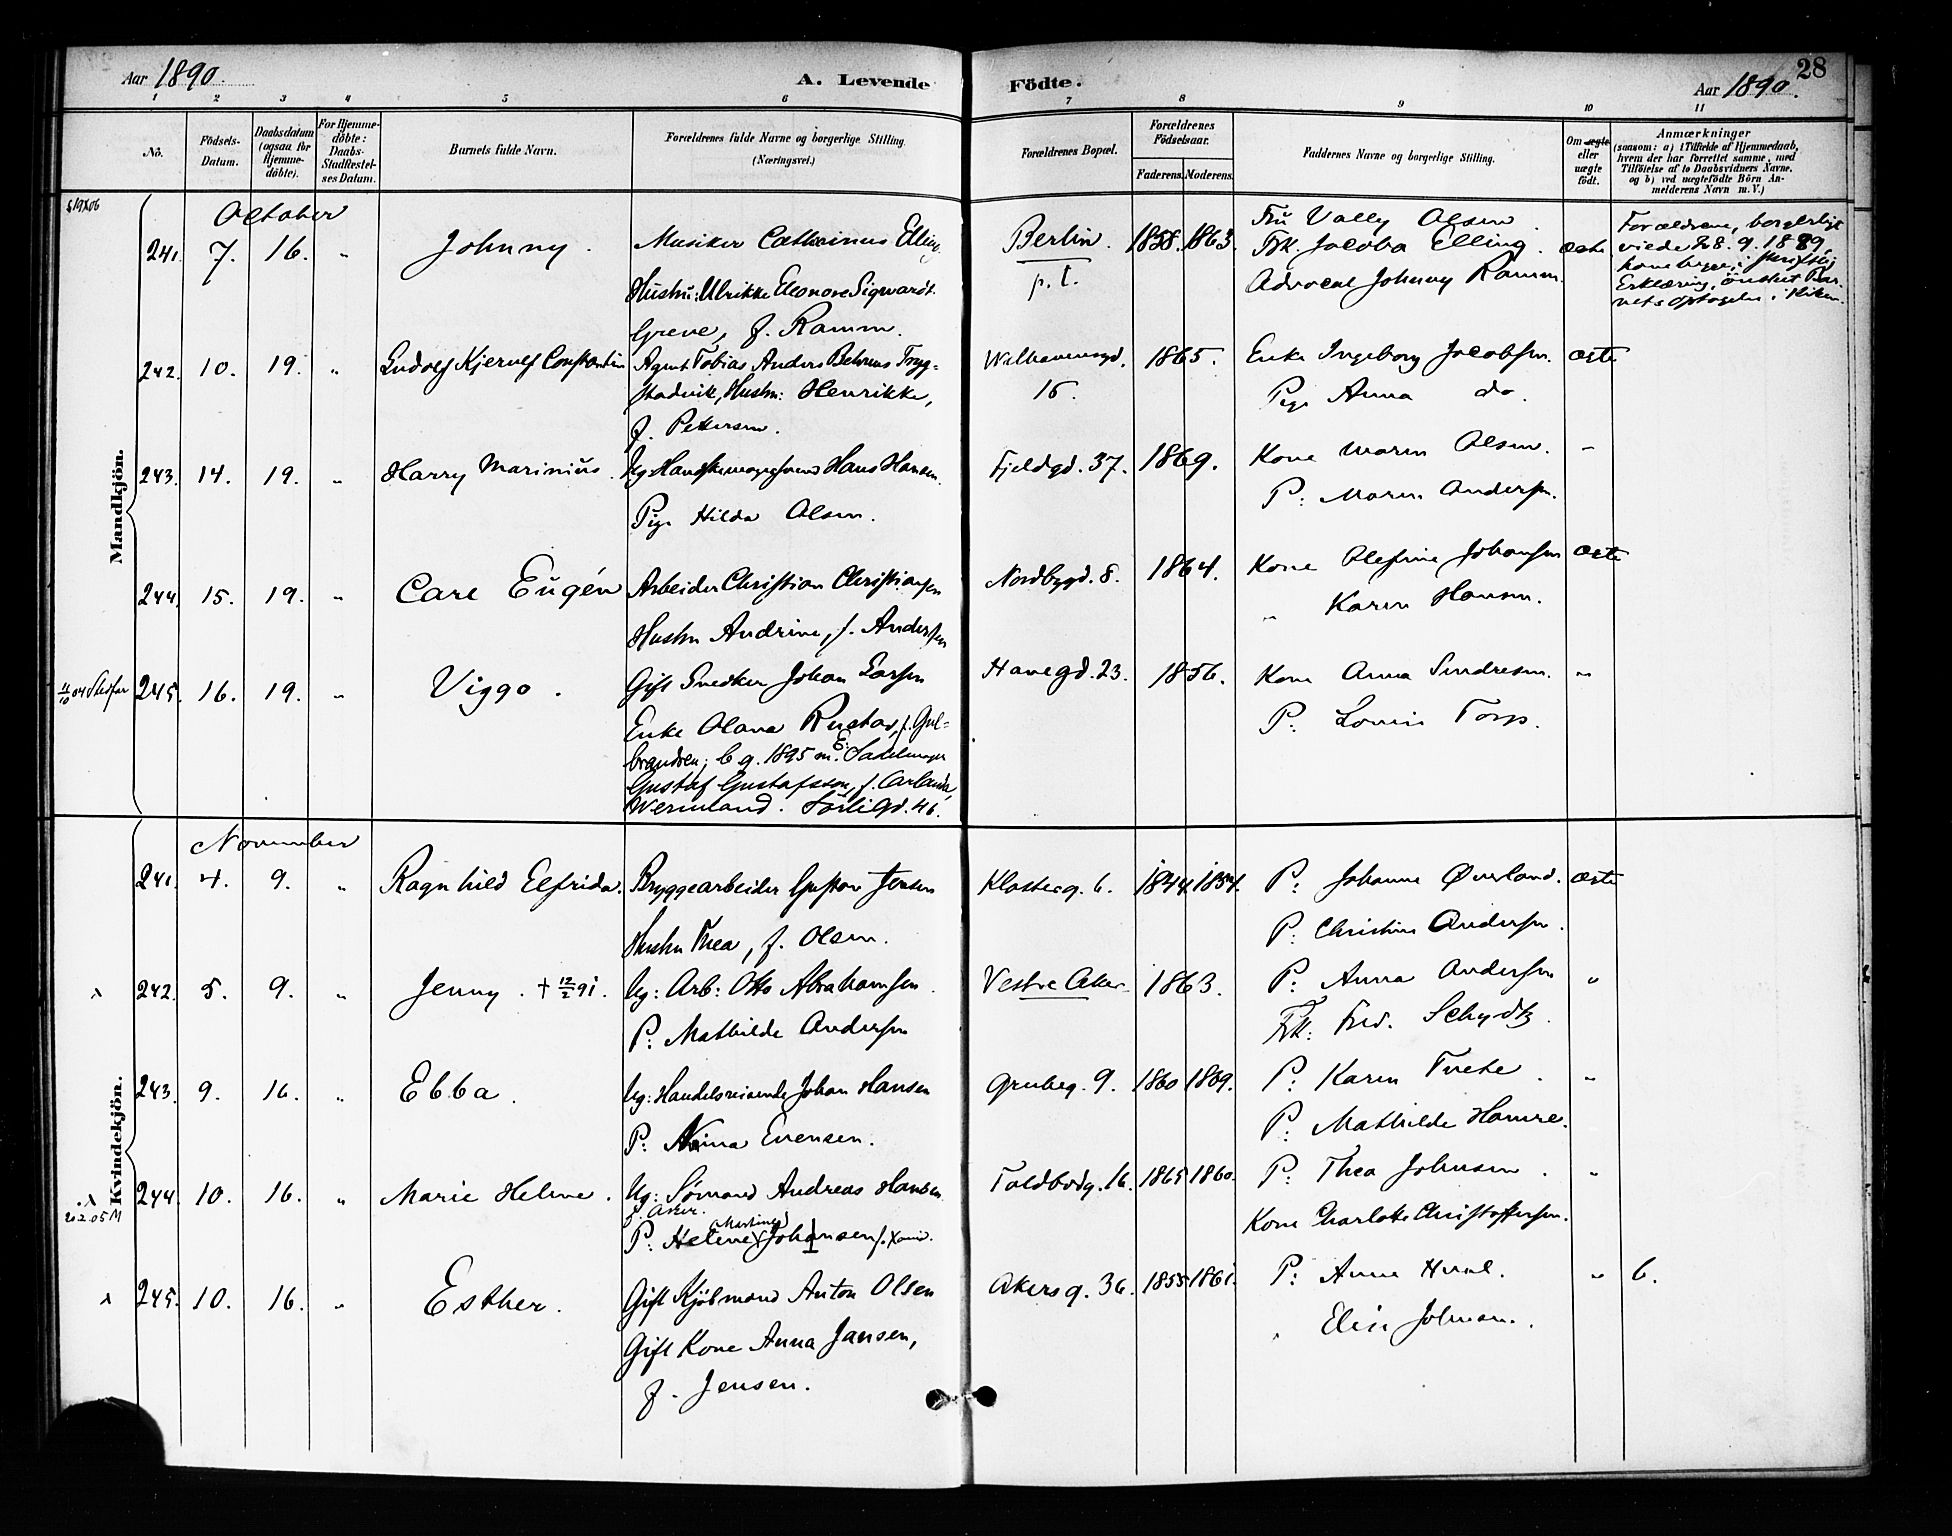 28
Aar 1890. A. Levende Födte. Aar 1890.
1 2 3 4 5 6 7 8 9 10 11
No. Födsels-Datum. Daabsdatum (ogsaa for Hjemme-döbte). For Hjemme-döbte: Daabs-Stadfæstel-ses Datum. Barnets fulde Navn. Forældrenes fulde Navne og borgerlige Stilling. (Næringsvei.) Forældrenes Bopæl. Forældrenes Födselsaar. Faderens. Moderens. Faddernes Navne og borgerlige Stilling. Om ægte eller uægte födt. Anmærkninger (saasom: a) i Tilfælde af Hjemmedaab, hvem der har forrettet samme, med Tilföielse af to Daabsvidners Navne, og b) ved uægtefödte Börn An-melderens Navn m. V.)
Mandkjön.
October
241. 7. 16. " Johnny. Musiker Catharinus Elling. Berlin. 1858. 1863. Fru Vally Olsen
Hustru: Ulrikke Eleonore Sigwardt p. t. Frk. Jacoba Elling. ægte
Greve, f. Ramm. Advocat Johnny Ramm.
Forældrene, borgerligt
viede 28. 9. 1889,
have begge i skriftlig
Erklæring, ønsket Bar-
nets optagelse i Kirken.
242. 10. 19. " Ludolf Kjerulf Constantin Agent Tobias Anders Behrens Tryg- Welhavensgd. 1865. Enke Ingeborg Jacobsen. ægte
stadvik, Hustru: Henrikke, 16. Pige Anna do.
f. Pettersen.
243. 14. 19. " Harry Marinius. Ug. Handskemagersvend Hans Hansen. Fjeldgd. 37. 1869. Kone Maren Olsen. "
Pige Hilda Olsen. P: Maren Andersen.
244. 15. 19. " Carl Eugén Arbeider Christian Christiansen Nordbygd. 8. 1864. Kone Olefine Johansen ægte
Hustru Andrine, f. Andersen " Karen Hansen.
245. 16. 19. " Viggo. Gift Snedker Johan Larsen Havegd. 23. 1856. Kone Anna Sindresen. "
Enke Olava Rustad, f. Gul- P: Lovise Torp.
brandsen; b g. 1895 m. E. Sadelmager
Gustaf Gustafsson, f. Carlanda,
Wermland. Sörligd. 46.
Kvindekjön.
November
241. 4. 9. " Ragnhild Elfrida. Bryggearbeider Gustav Jensen Klosterg. 6. 1844. 1854. P: Johanne Øverland. ægte
Hustru Thea, f. Olsen. P: Christine Andersen.
242. 5. 9. " Jenny. † 12/2 91. Ug: Arb: Otto Abrahamsen. Vestre Aker 1863. P: Anna Andersen "
P: Mathilde Andersen Frk: Fred. Schydtz.
243. 9. 16. " Ebba. Ug: Handelsreisende Johan Hansen Grubeg. 9. 1860 1869. P: Karen Tvete. "
P: Nina Evensen. P: Mathilde Hamre.
244. 10. 16. " Marie Helene. Ug: Sømand Andreas Hansen Toldbodg. 16. 1865 1860. P: Thea Johnsen. "
P: Helene (Martine) Johansen Kone Charlotte Christoffersen.
245. 10. 16. " Esther. Gift Kjöbmand Anton Olsen Akersg. 36. 1855 1861. P: Anna " 6.
Gift Kone Anna Jansen, " Elise Johnsen.
f. Jensen.